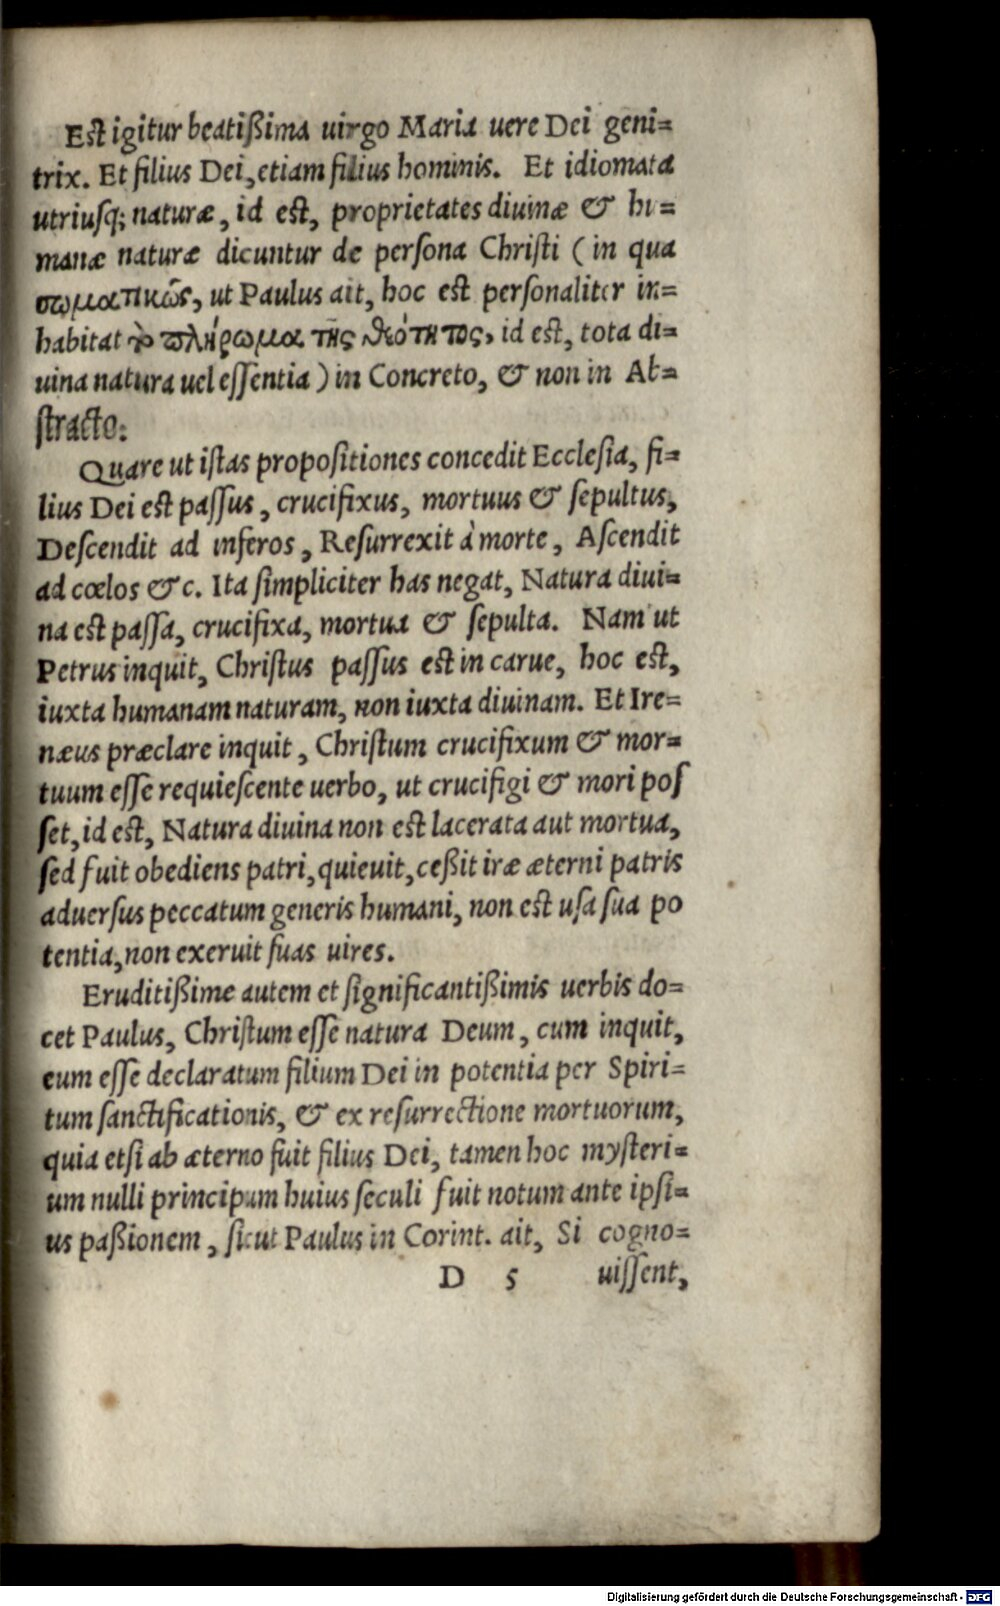 Est igitur beatißima uirgo Maria uere Dei geni=
trix. Et filius Dei, etiam filius hominis. Et idiomata
utriusq; naturæ, id est, proprietates diuinæ & hu=
manæ naturæ dicuntur de persona Christi ( in qua
σωματικῶς, ut Paulus ait, hoc est personaliter in=
habitat τὸ πλήρωμα τῆς θεότητος, id est, tota di=
uina natura uel essentia ) in Concreto, & non in Ab=
stracto.
Quare ut istas propositiones concedit Ecclesia, fi=
lius Dei est passus, crucifixus, mortuus & sepultus,
Descendit ad inferos, Resurrexit à morte, Ascendit
ad cœlos &c. Ita simpliciter has negat, Natura diui=
na est passa, crucifixa, mortua & sepulta. Nam ut
Petrus inquit, Christus passus est in carue, hoc est,
iuxta humanam naturam, non iuxta diuinam. Et Ire=
næus præclare inquit, Christum crucifixum & mor=
tuum esse requiescente uerbo, ut crucifigi & mori pos
set, id est, Natura diuina non est lacerata aut mortua,
sed fuit obediens patri, quieuit, ceßit iræ æterni patris
aduersus peccatum generis humani, non est usa sua po
tentia, non exeruit suas uires.
Eruditißime autem et significantißimis uerbis do=
cet Paulus, Christum esse natura Deum, cum inquit,
eum esse declaratum filium Dei in potentia per Spiri=
tum sanctificationis, & ex resurrectione mortuorum,
quia etsi ab æterno fuit filius Dei, tamen hoc mysteri=
um nulli principum huius seculi fuit notum ante ipsi=
us paßionem, sicut Paulus in Corint. ait, Si cogno=
D 5 uissent,
Digitalisierung gefördert durch die Deutsche Forschungsgemeinschaft - DFG